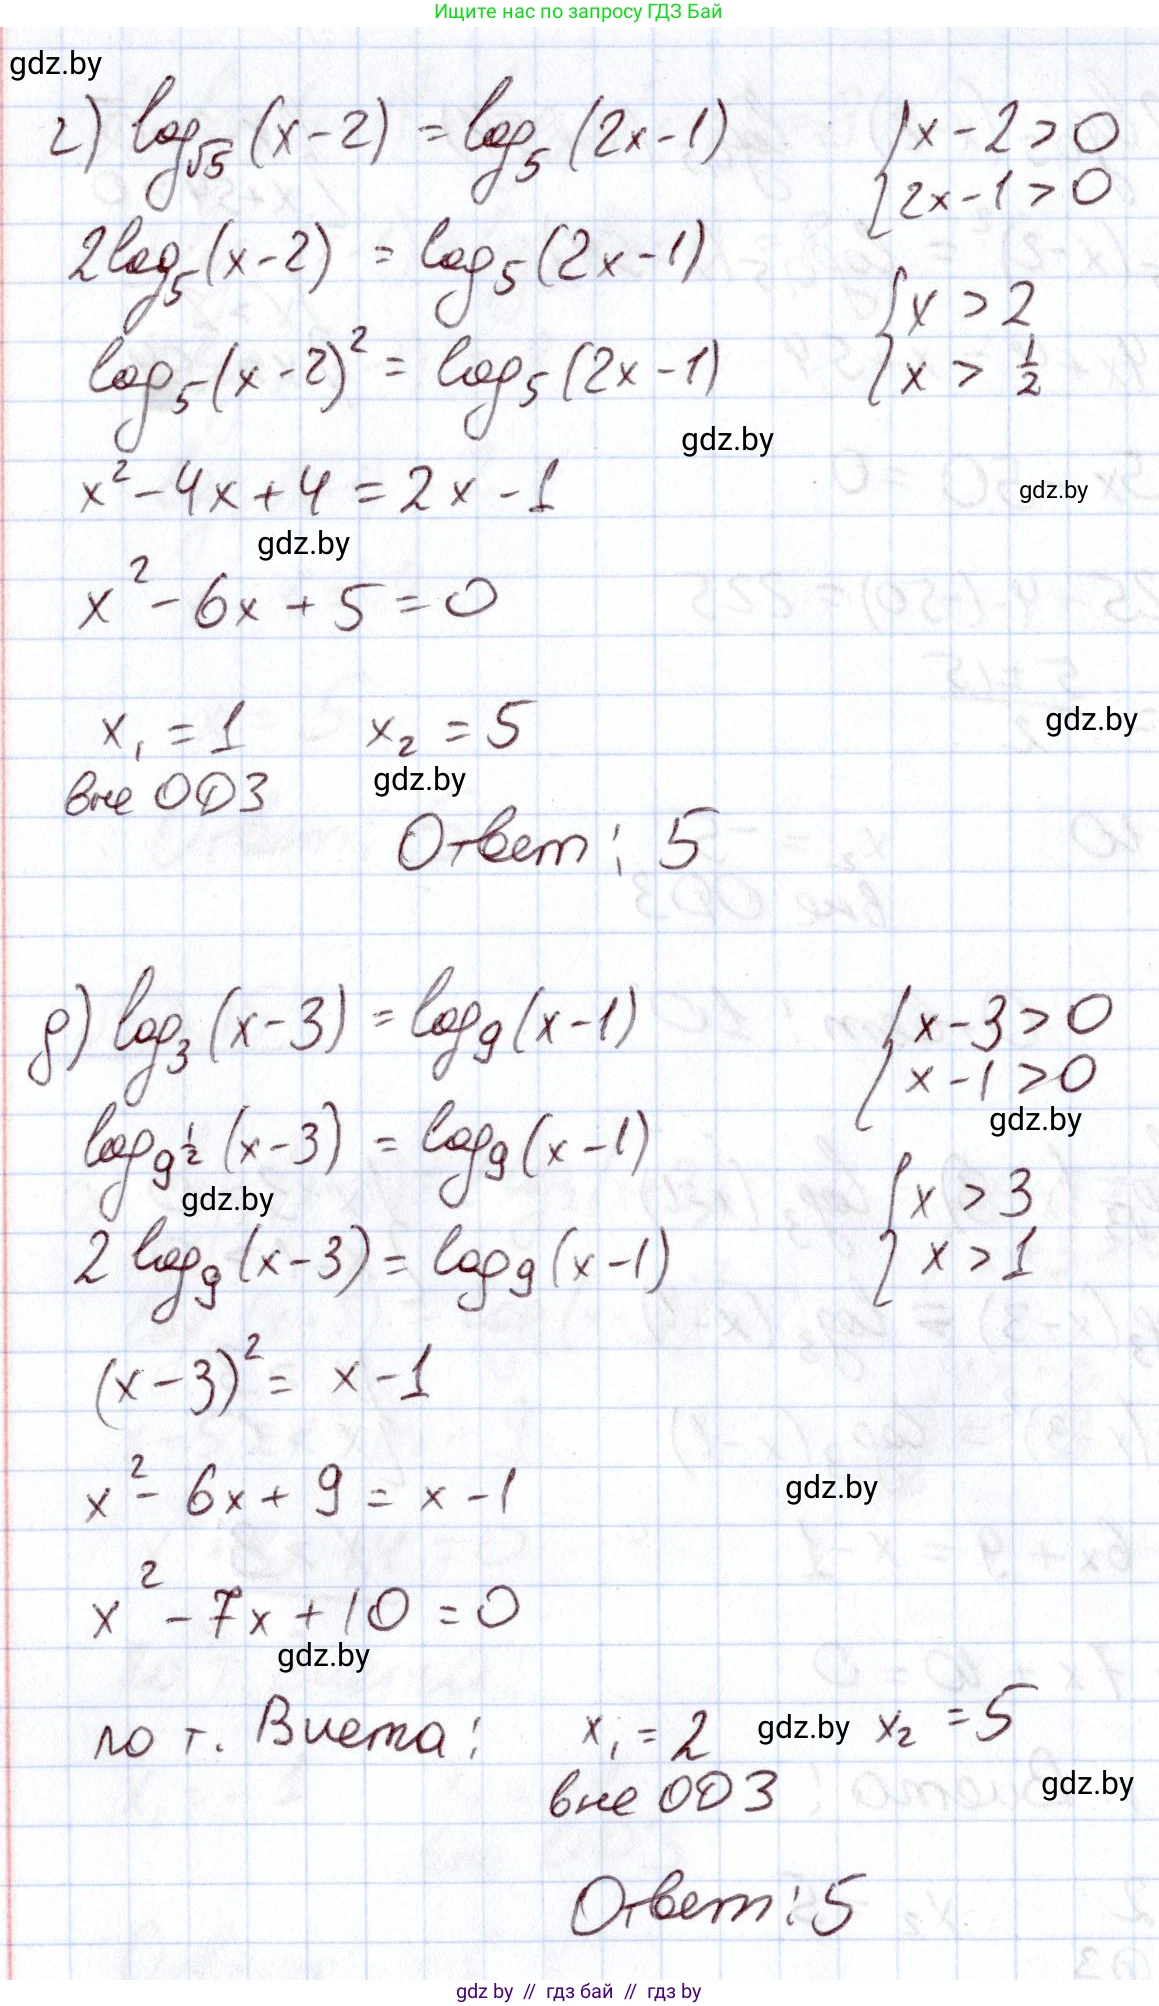 Ищите нас по запросу ГДЗ Бай
gdz.by
г) log√5 (x-2) = log5 (2x-1)
{ x-2>0
2x-1>0
2log5(x-2) = log5(2x-1)
{ x > 2
x > 1/2
log5(x-2)² = log5(2x-1)
gdz.by
x²-4x+4=2x-1
gdz.by
gdz.by
x²-6x+5=0
x₁=1 x₂=5
gdz.by
вне ОДЗ
gdz.by
Ответ: 5
д) log3(x-3) = log9(x-1)
{ x-3>0
x-1>0
gdz.by
log9^1/2 (x-3) = log9(x-1)
gdz.by
{ x > 3
x > 1
2 log9(x-3) = log9(x-1)
(x-3)² = x-1
x²-6x+9=x-1
gdz.by
x²-7x+10=0
gdz.by
по т. Виета: x₁=2 gdz.by x₂=5
вне ОДЗ
gdz.by
Ответ: 5
gdz by // гдз бай // gdz by